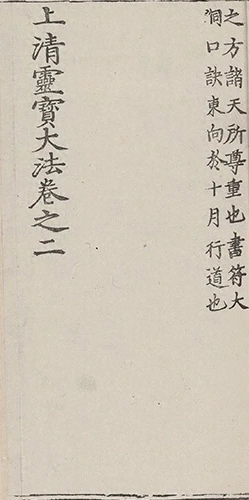 之方諸天所尊重也書符大
洞口訣東向於十月行道也
上清靈寶大法卷之二